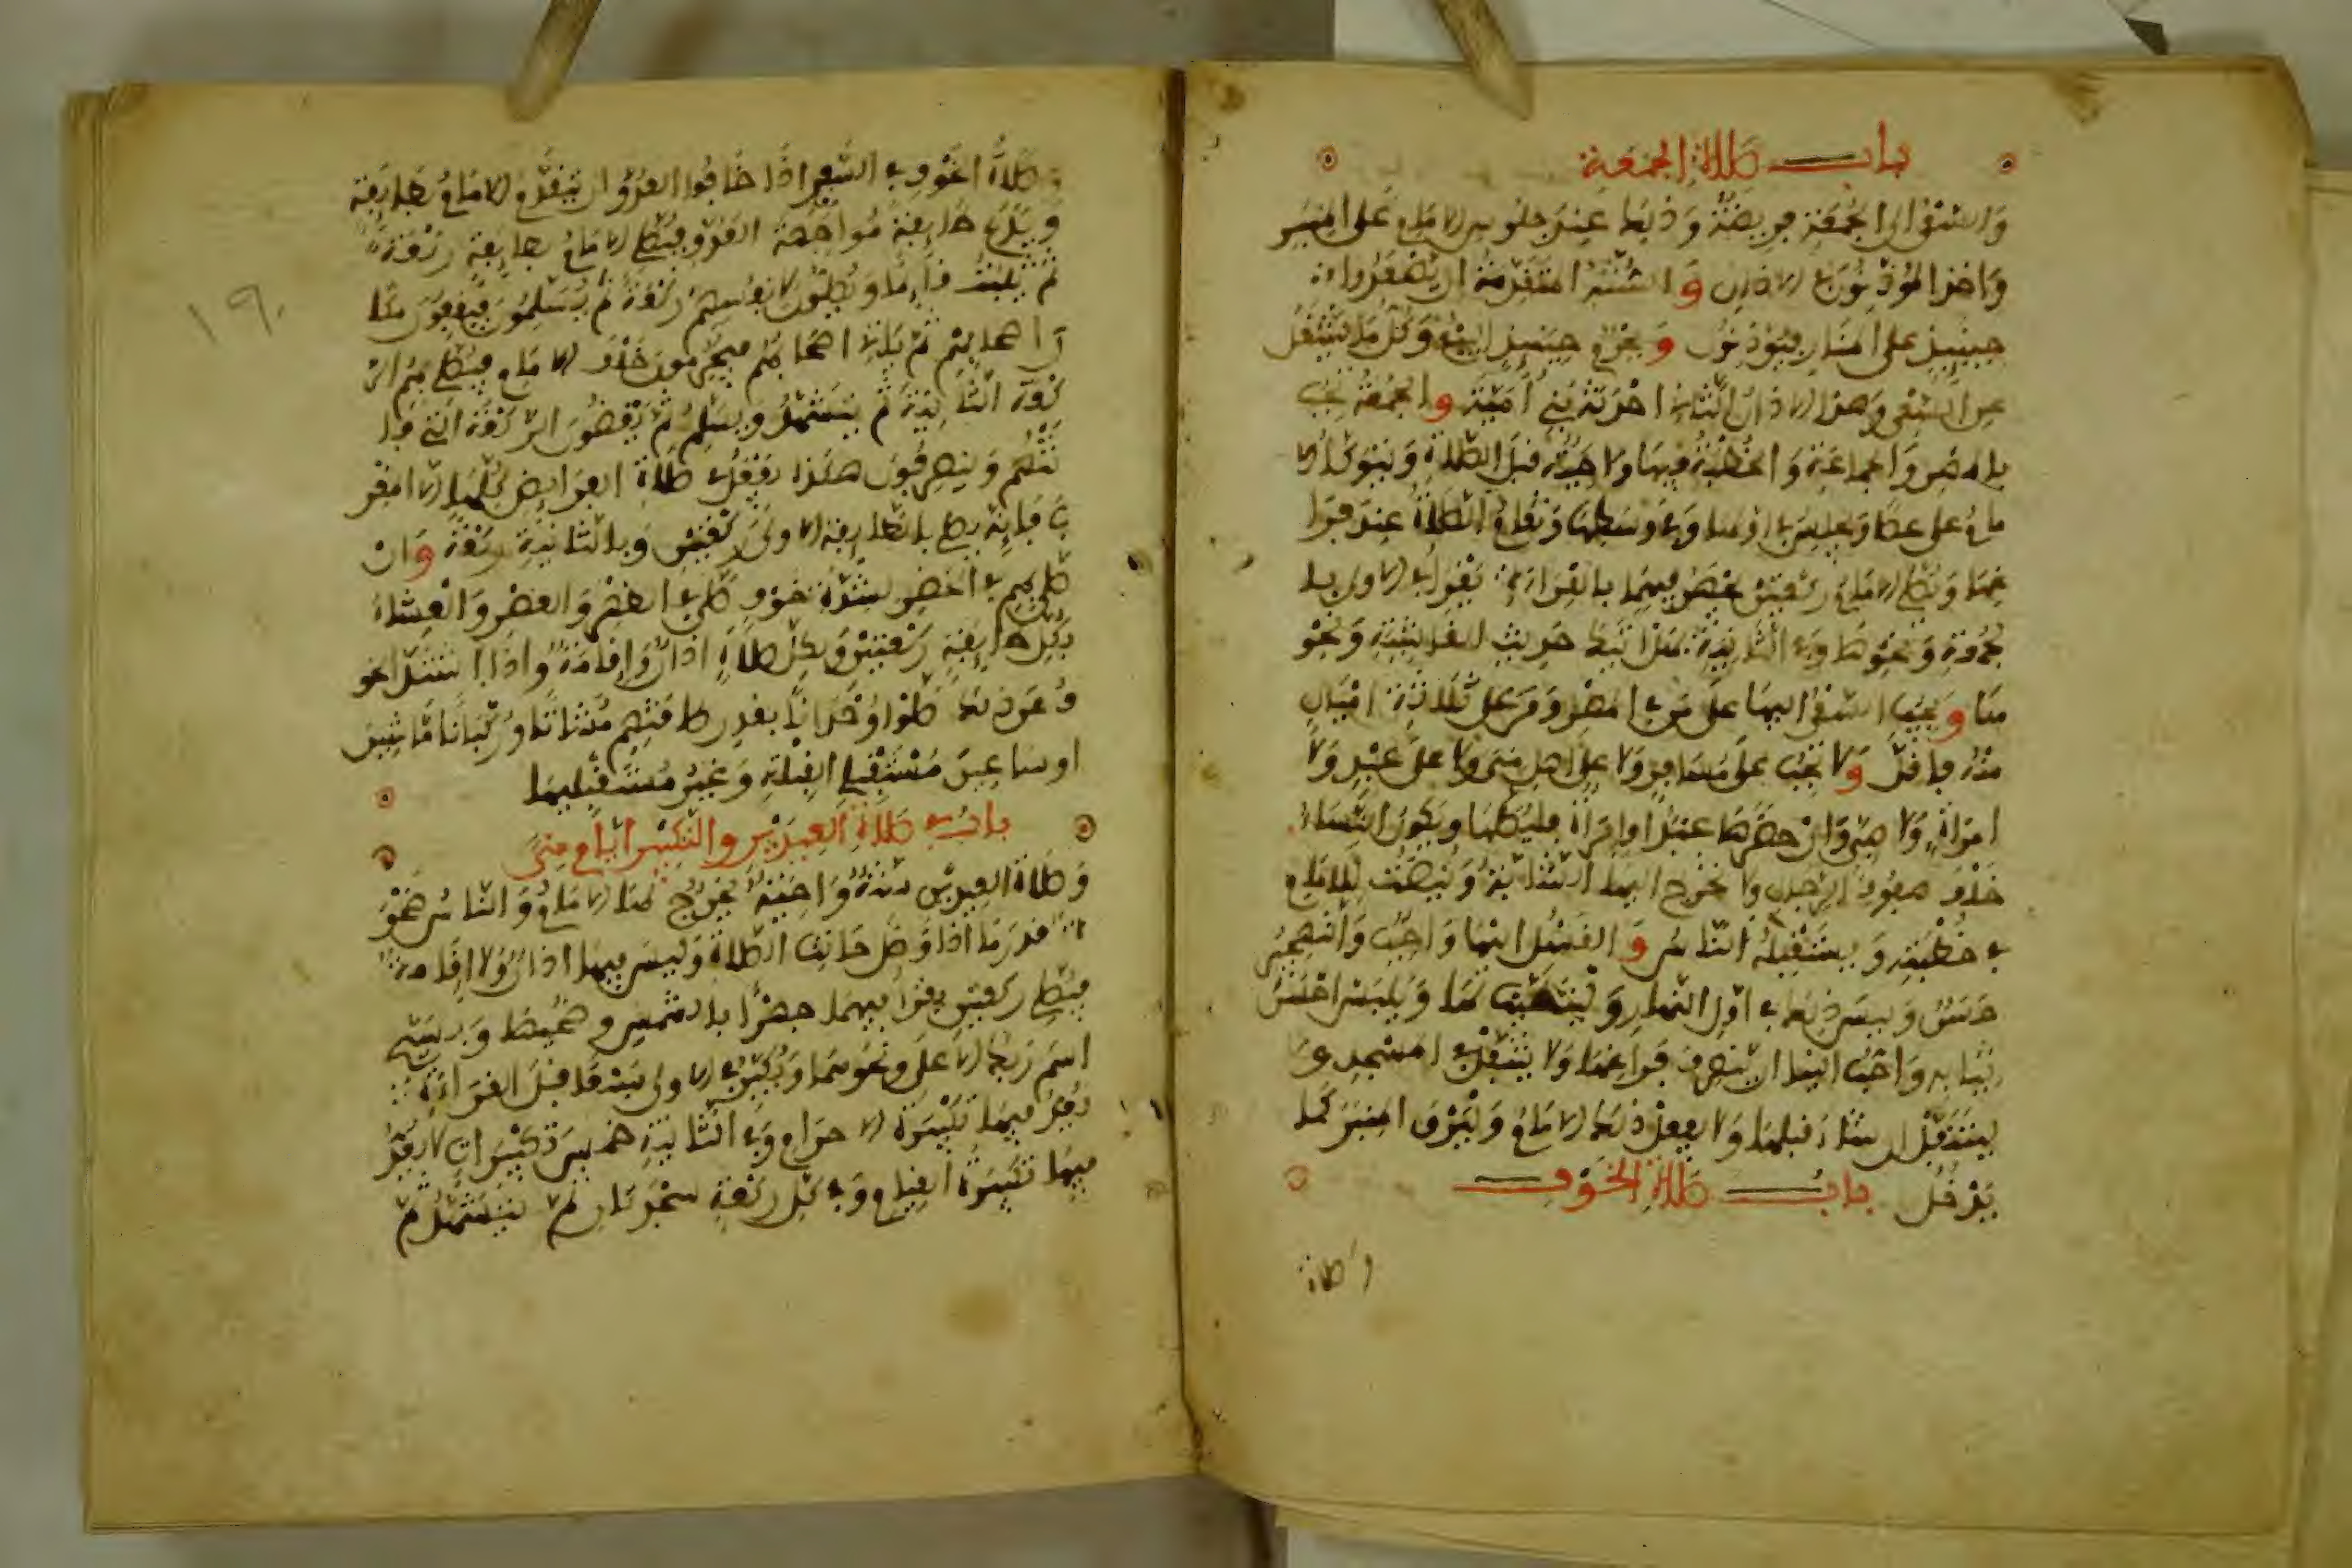 باب صلاة الجمعة
والسعي الى الجمعة فريضة وذلك عند جلوس الامام على المنبر
واخذ الموذنون في الاذان والسنة المتقدمة ان يصعدوا
حينئذ على المنار فيوذنون ويحرم حينئذ البيع وكل ما يشغل
عن السعي وهذا الاذان الثاني احدثه بني امية والجمعة تجب
بالمصر والجماعة والخطبة فيها واجبة قبل الصلاة ويتوكأ الا
مام على عصا ويجلس في اولها وفي وسطها وتقام الصلاة عند فرا
غها ويصلي الامام ركعتين يجهر فيهما بالقراءة يقرأ في الاولى بال
جمعة ونحوها وفي الثانية بهل اتيك حديث الغاشية ونحو
ها ويجب السعي اليها على من في المصر ومن على ثلاثة اميال
منه فاقل ولا تجب على مسافر ولا على اهل منى ولا على عبد ولا
امرأة ولا صبي وان حضرها عبد او امرأة فليصلها ويكون النساء
خلف صفوف الرجال ولا تخرج اليها الشابة وينصت للامام
في خطبته ويستقبله الناس والغسل لها واجب والتهجير
حسن وليس ذلك في اول النهار وليتطيب لها ويلبس احسن
ثيابه واحب الينا ان ينصرف فراغها ولا يتنفل في المسجد و
ليتنفل ان شاء قبلها ولا يفعل ذلك الامام وليرق المنبر كما
يدخل باب صلاة الخوف
وصلاة
وصلاة الخوف في السفر اذا خافوا العدو ان يتقدم الامام بطايفة
ويدع طايفة مواجهة العدو فيصلي الامام بطايفة ركعة
ثم يثبت قايما ويصلون لانفسهم ركعة ثم يسلمون فيقفون مكا
ن اصحابهم ثم ياتي اصحابهم فيحرمون خلف الامام فيصلي بهم الر
كعة الثانية ثم يتشهد ويسلم ثم يقضون الركعة التي فا
تتهم وينصرفون هكذا يفعل في صلاة الفرايض كلها الا المغر
ب فانه يصلي بالطايفة الاولى ركعتين وبالثانية ركعة وان
صلى بهم في الحضر لشدة خوف صلى في الظهر والعصر والعشاء
بكل طايفة ركعتين ولكل صلاة اذان واقامة واذا اشتد الخو
ف عن ذلك صلوا وحدانا بقدر طاقتهم مشاتا وركبانا ماشين
او ساعين مستقبلي القبلة وغير مستقبليها
باب في صلاة العيدين والتكبير ايام منى
وصلاة العيدين سنة واجبة يخرج لها الامام والناس ضحو
ة قدر ما اذا وصل حانت الصلاة وليس فيها اذان ولا اقامة
فيصلي ركعتين يقرأ فيهما جهرا بالشمس وضحيها وبسبح
اسم ربك الاعلى ونحوهما ويكبر في الاولى سبعا قبل القراءة
يعد فيها تكبيرة الاحرام وفي الثانية خمس تكبيرات لا يعد
فيها تكبيرة القيام وفي كل ركعة سجدتان ثم يتشهد ثم
١٩٠